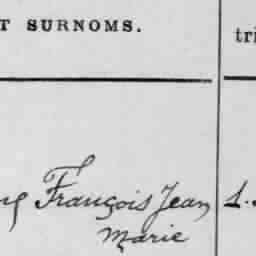 T SURNOMS.
tri
François Jean
Marie